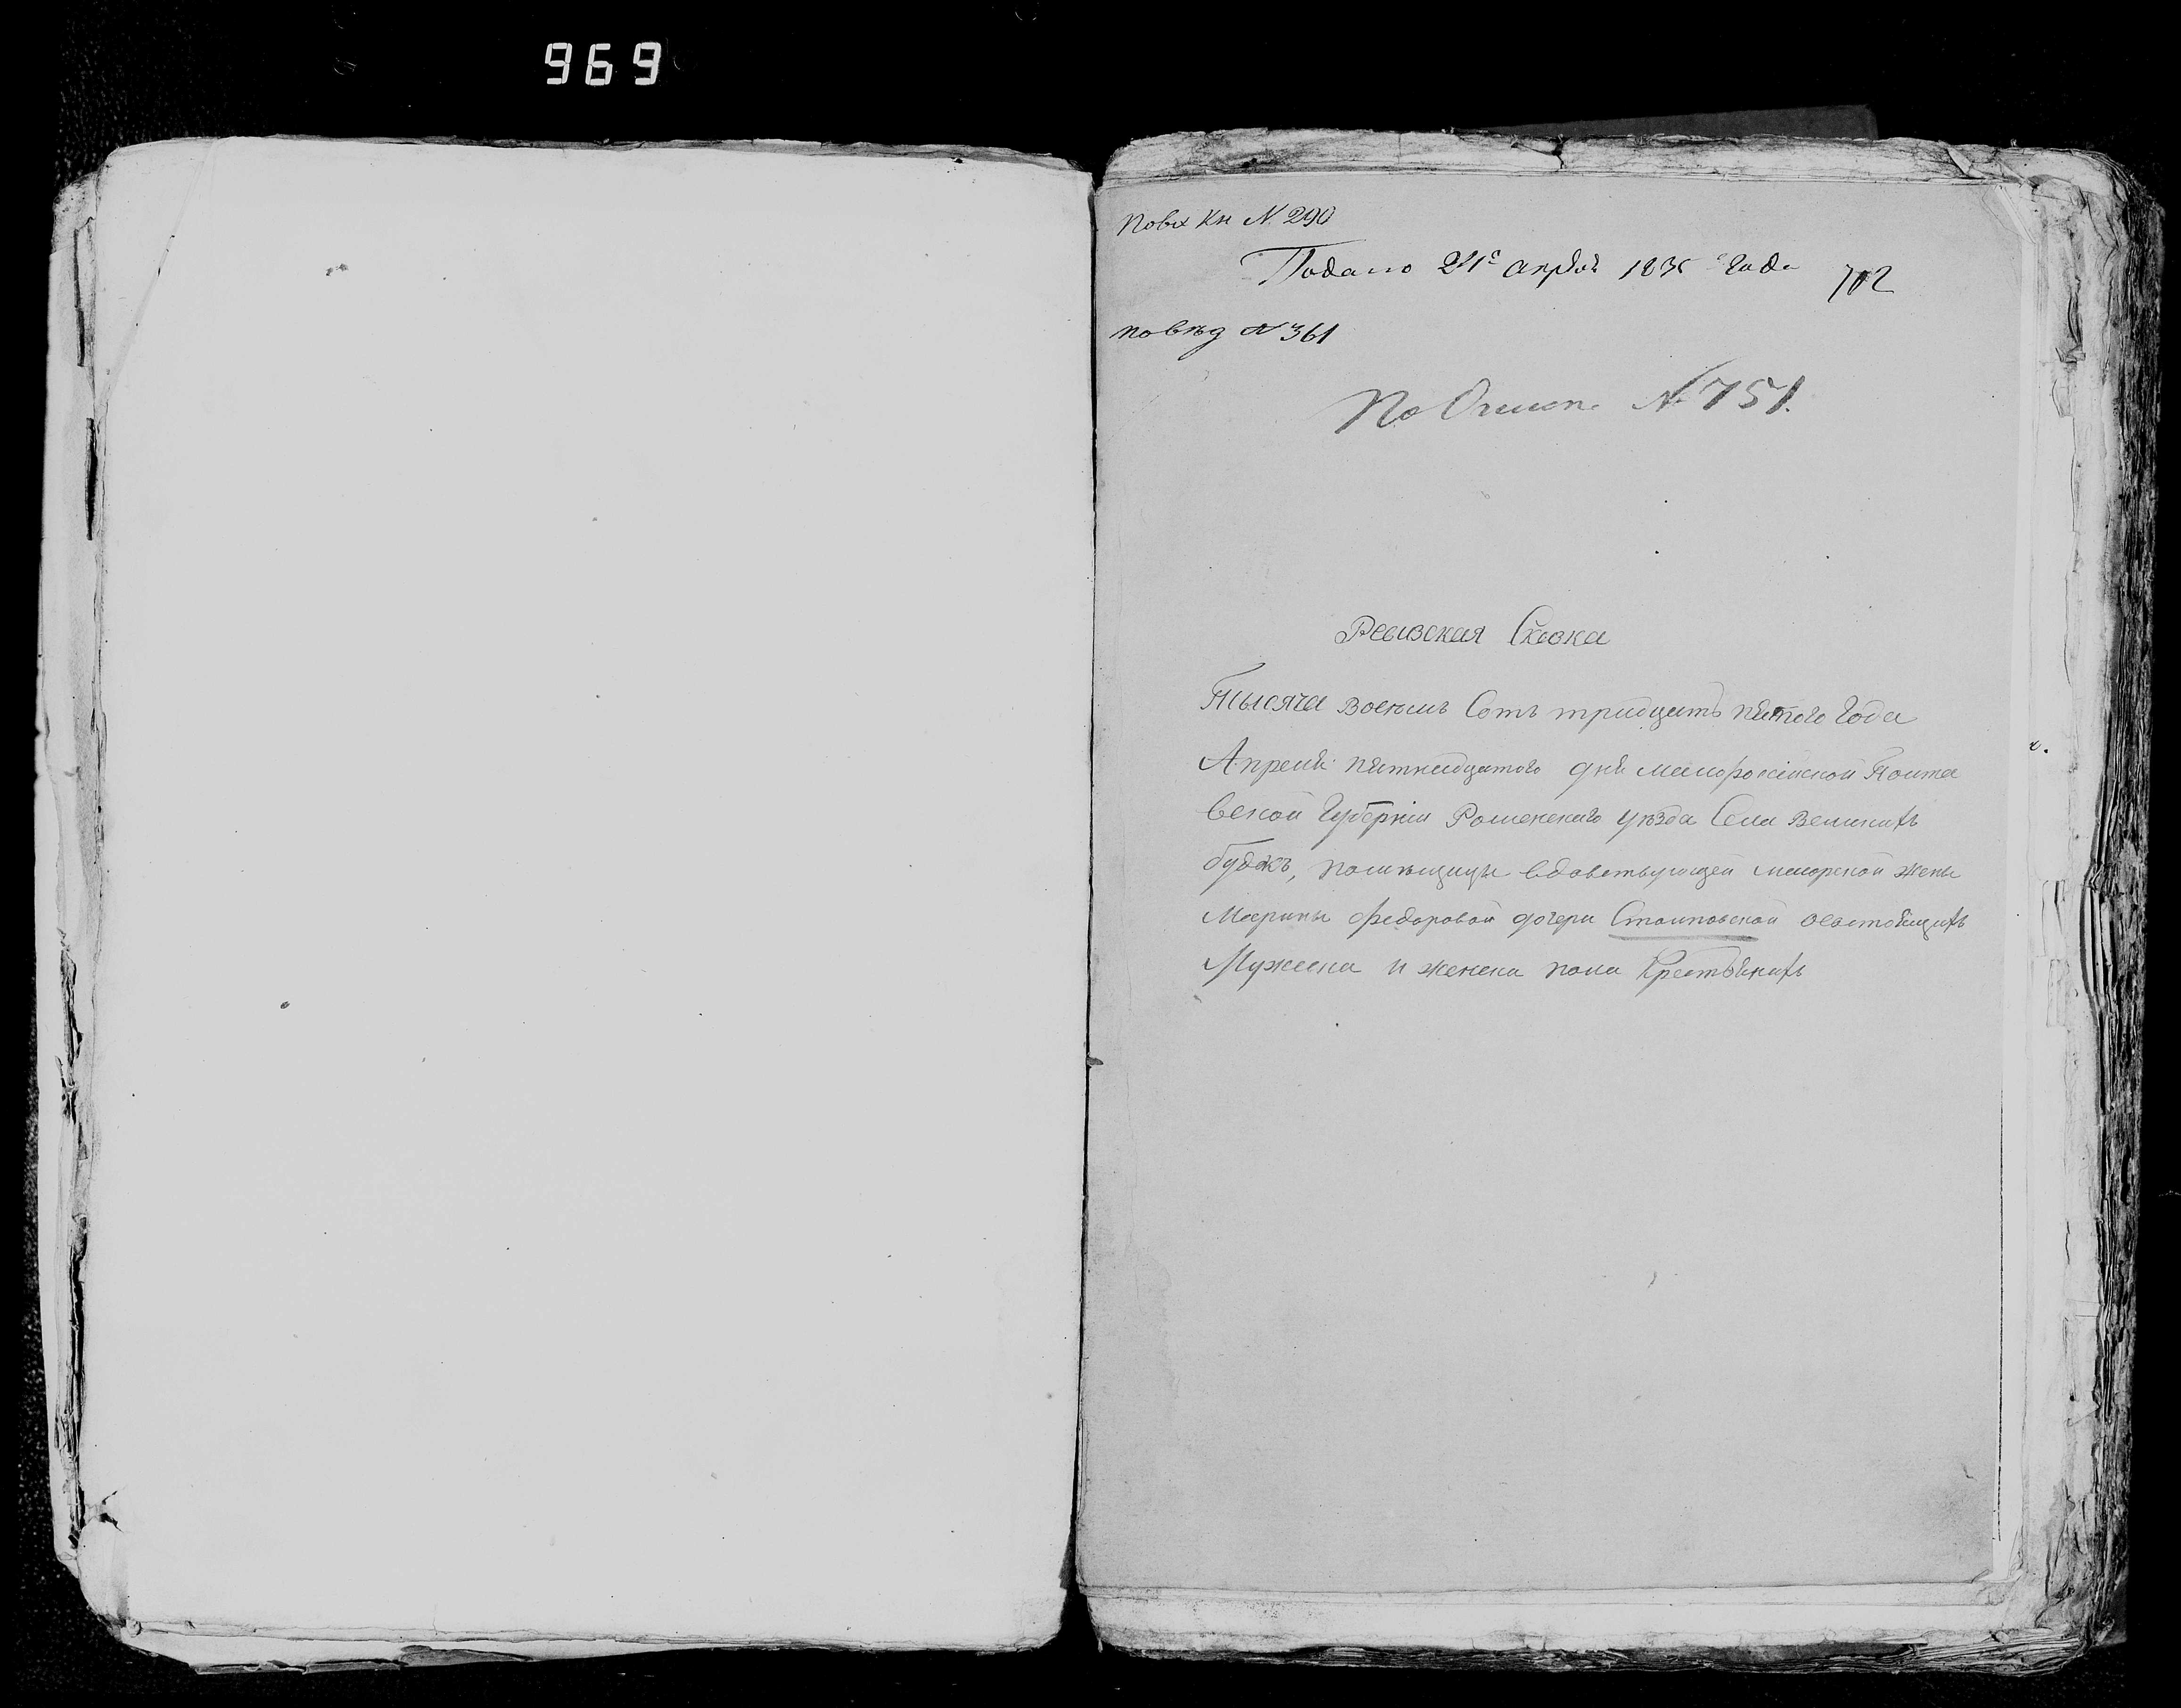 969
По вх Кн N. 290
Подано 24го апреля 1835 года
702
по вѣд N 361
По Описи N. 751.
Ревизская Сказка
Тысяча восемь Сотъ тридцать пятого Года
Апреля пятнадцатого дня малоросійской Полта
вской Губерніи Роменского уѣзда Села Великихъ
будокъ, помѣщицы вдовствующей маиорской жены
Марины федоровой дочери освстоящихъ
Мужеска и женска пола Крестьянахъ